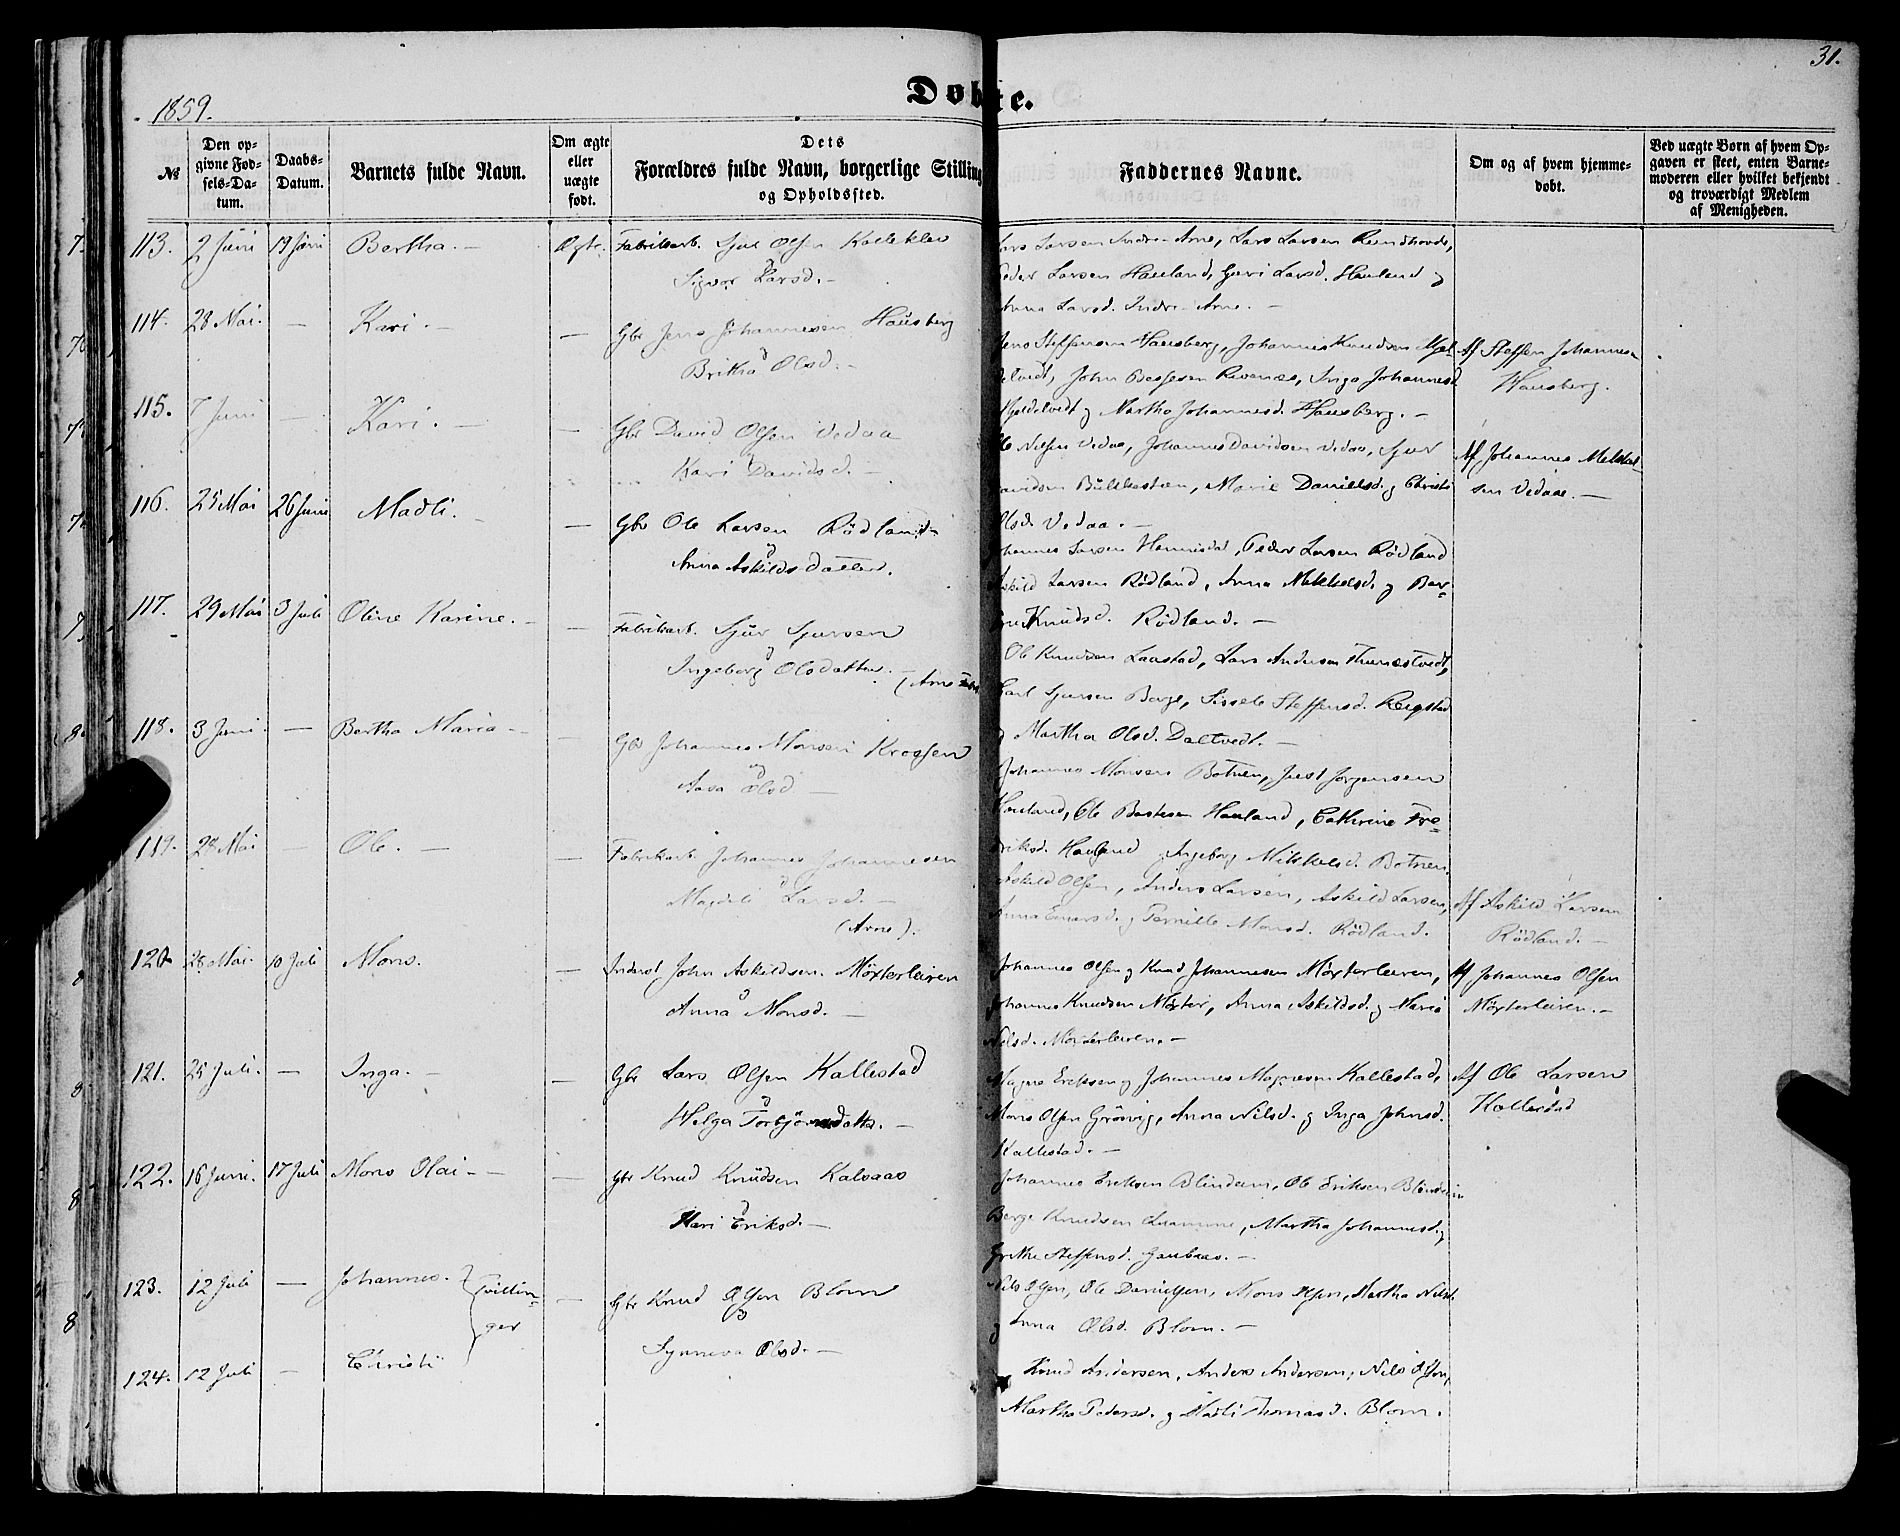 31.
1859.
Døbte.
№
Den op-
givne Fød-
sels-Da-
tum.
Daabs-
Datum.
Barnets fulde Navn.
Om ægte
eller
uægte
født.
Dets
Forældres fulde Navn, borgerlige Stilling
og Opholdssted.
Faddernes Navne.
Om og af hvem hjemme-
døbt.
Ved uægte Børn af hvem Op-
gaven er skeet, enten Barne-
moderen eller hvilket bekjendt
og troværdigt Medlem
af Menigheden.
113. 2 Juni 19 Juni Bertha. — Ægte. Fabrikarb. Sjur Olsen Kalleklev
Larsd. —
Lars Larsen Indre-Arne, Lars Larsen Rundhovde,
Peder Larsen Haukeland, Guri Larsd. Haukeland og
Anna Larsd. Indre-Arne. —
114. 28 Mai. — Kari. — — Gbr Jens Johannesen Hausberg
og
Britha Olsd. —
Steffensen Hausberg, Johannes Knudsen
John Revenæs, Inga Johannesd.
og Martha Johannesd. Hausberg. —
Af Steffen Johannes-
Hausberg.
115. 7 Juni — Kari. — — Gbr David Olsen Vedaa
og
Kari Davidsd. —
Ole Nilsen Vedaa, Johannes Davidsen Vedaa, Sjur
Davidsen Marie Danielsd. og Christi
Olsd. Vedaa. —
Af Johannes
sen Vedaa. —
116. 25 Mai 26 Juni Madli. — — Gbr Ole Larsen Rødland
og
Anna Askildsdatter.
Johannes Larsen Peder Larsen Rødland
Askild Larsen Rødland, Anna Mikkelsd. og Ber-
Knudsd. Rødland. —
117. 29 Mai 3 Juli Oline Karine. — — Fabrikarb. Sjur Sjursen
og
Ingeborg Olsdatter. —
(Arne
Ole Knudsen Laastad, Lars Andersen Tunestvedt,
Sjursen Borge, Sissele Steffensd. Reigstad
og Martha Olsd. Daltvedt. —
118. 3 Juni. — Bertha Maria — — Gbr Johannes Monsen
og
Aasa Olsd —
Johannes Monsen Botnen, Just Jørgensen
Haukland, Ole Haukland, Cathrine Fre-
driksd. Haukland og Ingeborg Mikkelsd. Botnen.
119. 28 Mai — Ole. — — Fabrikarb. Johannes Johannesen
og
Magdeli Larsd. —
(Arne).
Askild Olsen, Anders Larsen, Askild Larsen,
Anna og Pernille Monsd. Rødland.
Af Askild Larsen
Rødland. —
120 28 Mai. 10 Juli Mons. — Inderst John Askildsen. Möxterleiren
og
Anna Monsd. —
Johannes Olsen og Knud Johannesen Möxterleiren,
Johannes Knudsen Möxter, Anna Askildsd. og Maria
Nilsd. Möxterleiren. —
Af Johannes Olsen
Möxterleiren. —
121. 25 Juli. — Inga. — — Gbr Lars Olsen Kallestad
og
Helga Torbjörnsdatter. —
Magne Eriksen og Johannes Magnesen Kallestad,
Mons Olsen Grönvig, Anna Nilsd. og Inga Johnsd.
Kallestad. —
Af Ole Larsen
Kallestad
122. 16 Juni. 17 Juli Mons Olai — — Gbr Knud Knudsen Kalsaas
og
Kari Eriksd. —
Johannes Eriksen Blindem, Ole Eriksen
Berge Knudsen Martha Johannesd. og
Steffensd. —
123. 12 Juli — Johannes. Tvillin- — Gbr Knud Olsen Blom
ger
og
Synneva Olsd. —
Nils Olsen, Ole Danielsen, Mons Olsen, Martha Nilsd.
og Anna Olsd. Blom. —
124. 12 Juli — Christi
Knud Andersen, Anders Andersen, Nils Olsen,
Martha Pedersd. og Madli Thomasd. Blom.